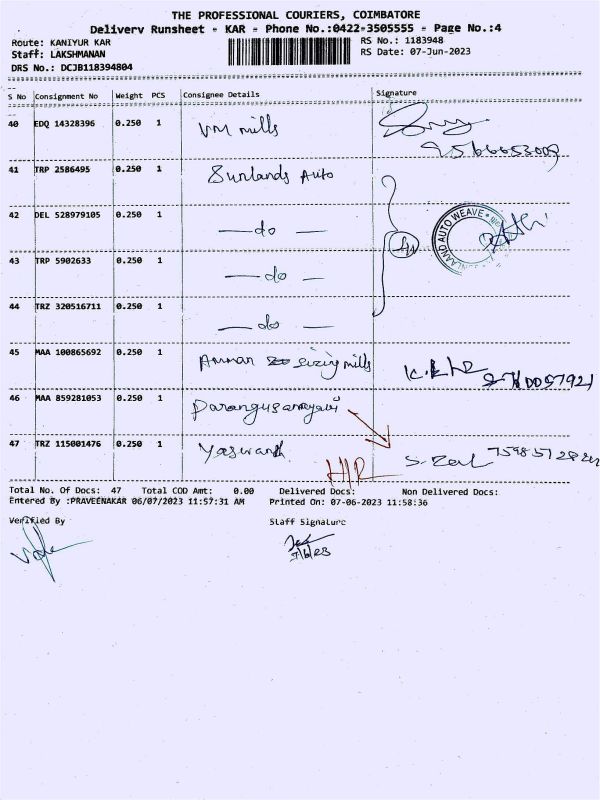 THE PROFESSIONAL COURIERS, COIMBATORE
Delivery Runsheet - KAR - Phone No.:0422-3505555 - Page No.:4
Route: KANIYUR KAR
RS No.: 1183948
Staff: LAKSHMANAN
RS Date: 07-Jun-2023
DRS No.: DCJB118394804
S No Consignment No Weight PCS Consignee Details Signature
40 EDQ 14328396 0.250 1 VM mills
41 TRP 2586495 0.250 1 Sunlands Auto
42 DEL 528979105 0.250 1 — do —
43 TRP 5902633 0.250 1 — do —
44 TRZ 320516711 0.250 1 — do —
AUTO WEAVE
45 MAA 100865692 0.250 1 Amman sizing mills
46 MAA 859281053 0.250 1
47 TRZ 115001476 0.250 1 Yaswanth
Total No. Of Docs: 47 Total COD Amt: 0.00 Delivered Docs: Non Delivered Docs:
Entered By :PRAVEENAKAR 06/07/2023 11:57:31 AM Printed On: 07-06-2023 11:58:36
Verified By Staff Signature